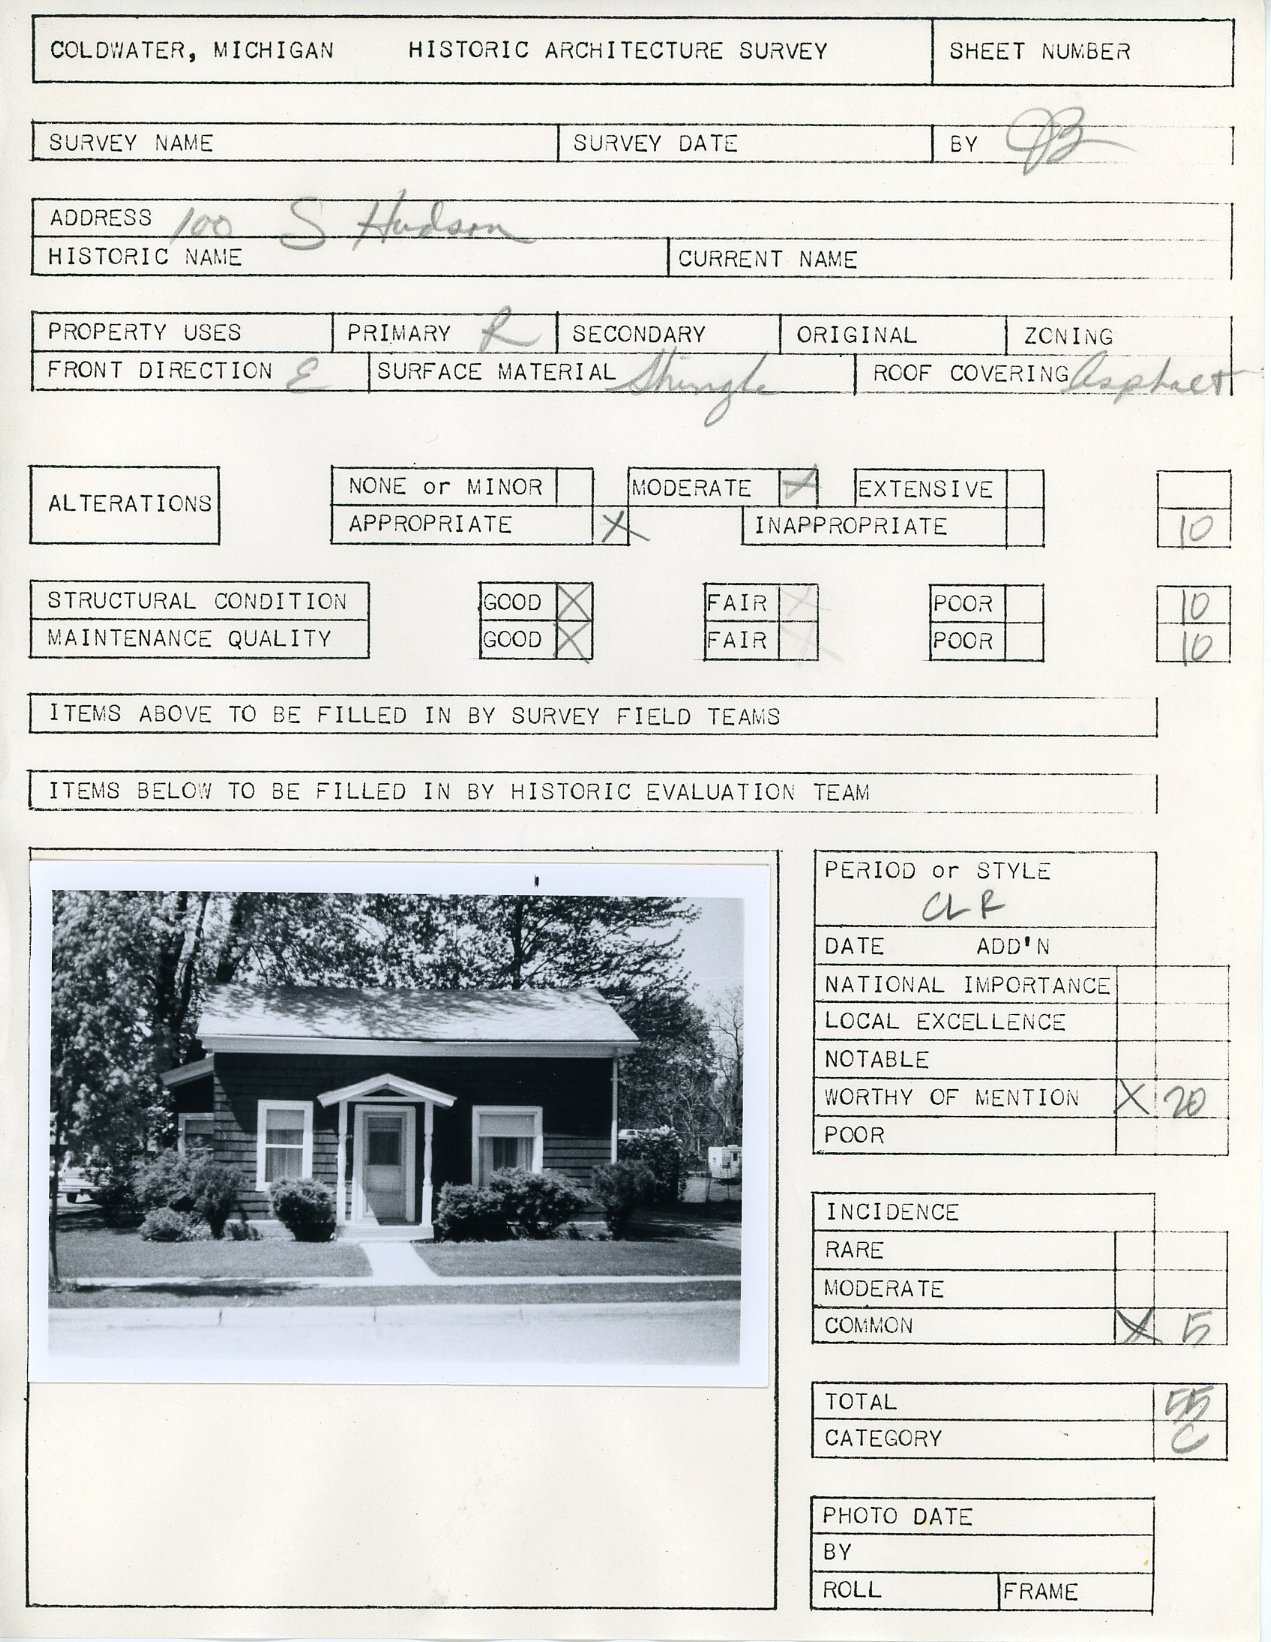 COLDWATER, MICHIGAN HISTORIC ARCHITECTURE SURVEY SHEET NUMBER
SURVEY NAME SURVEY DATE BY JB
ADDRESS 100 S Hudson
HISTORIC NAME CURRENT NAME
PROPERTY USES PRIMARY R SECONDARY ORIGINAL ZONING
FRONT DIRECTION E SURFACE MATERIAL Shingle ROOF COVERING Asphalt
ALTERATIONS
NONE or MINOR MODERATE X EXTENSIVE
APPROPRIATE X INAPPROPRIATE 10
STRUCTURAL CONDITION GOOD X FAIR X POOR 10
MAINTENANCE QUALITY GOOD X FAIR X POOR 10
ITEMS ABOVE TO BE FILLED IN BY SURVEY FIELD TEAMS
ITEMS BELOW TO BE FILLED IN BY HISTORIC EVALUATION TEAM
PERIOD or STYLE
CLR
DATE ADD'N
NATIONAL IMPORTANCE
LOCAL EXCELLENCE
NOTABLE
WORTHY OF MENTION X 20
POOR
INCIDENCE
RARE
MODERATE
COMMON X 5
TOTAL 55
CATEGORY C
PHOTO DATE
BY
ROLL FRAME